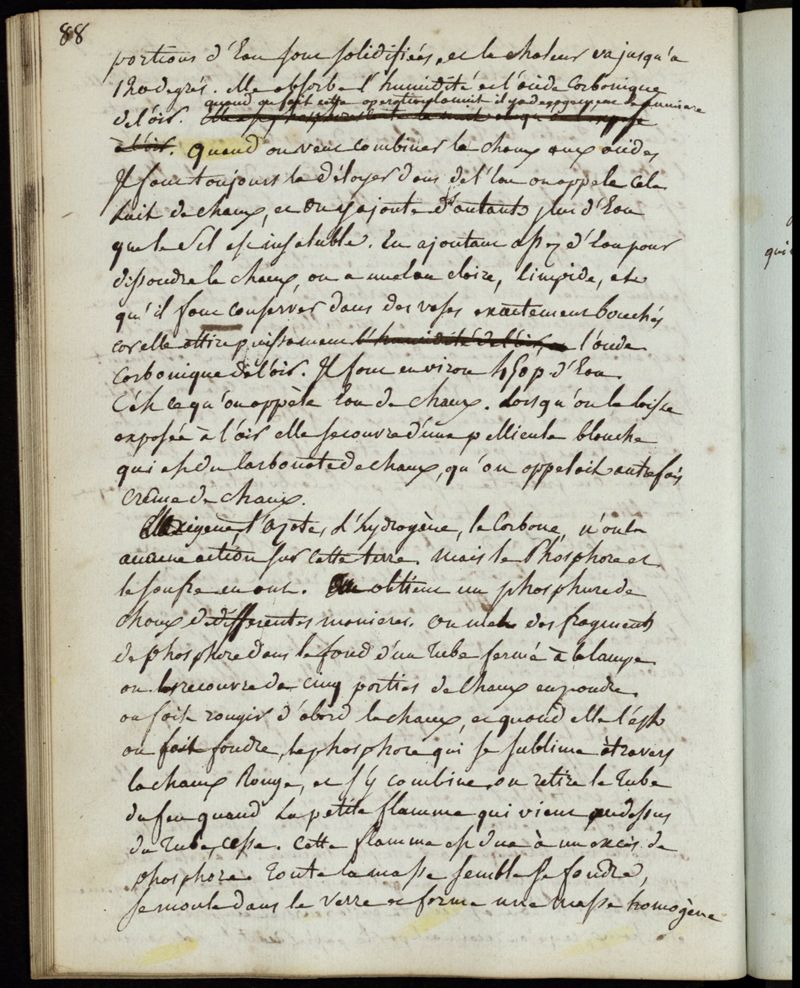 88
portions d'Eau sont solidifiées, et la chaleur va jusqu'a
120 degrés. Elle absorbe l'humidité et l'acide Carbonique
quand on fait cette operation la nuit il y a degagement de lumiere
de l'air.
à l'air. Quand on veut combiner la chaux aux acides
Il faut toujours la délayer dans de l'Eau on appele cela
Lait de chaux, et on y ajoute d'autant plus d'Eau
que le Sel est insoluble. En ajoutant assez d'Eau pour
dissoudre la chaux, on a une Eau claire, limpide, et
qu'il faut conserver dans des vases exactement bouchés
car elle attire puissamment l'humidité de l'air, et l'acide
Carbonique de l'air. Il faut environ 450 p d'Eau.
C'est ce qu'on appèle Eau de chaux. Lorsqu'on la laisse
exposée à l'air elle se couvre d'une pellicule blanche
qui est du Carbonate de chaux, qu'on appelait autrefois
crême de chaux.
L'oxigène, l'azote, l'hydrogène, le Carbone, n'ont
aucune action sur cette terre. mais le Phosphore et
le soufre en ont. On obtient un phosphure de
chaux de differentes manieres. on met des fragments
de phosphore dans le fond d'un Tube fermé à la lampe
on les recouvre de cinq parties de Chaux en poudre,
on fait rougir d'abord la chaux, et quand elle l'est
on fait fondre, le phosphore qui se sublime à travers
la chaux Rouge, et s'y combine, on retire le Tube
du feu quand La petite flamme qui vient au dessus
du Tube, cesse. Cette flamme est due à un excès de
phosphore. Toute la masse semble se fondre,
se moule dans le verre et forme une masse homogène